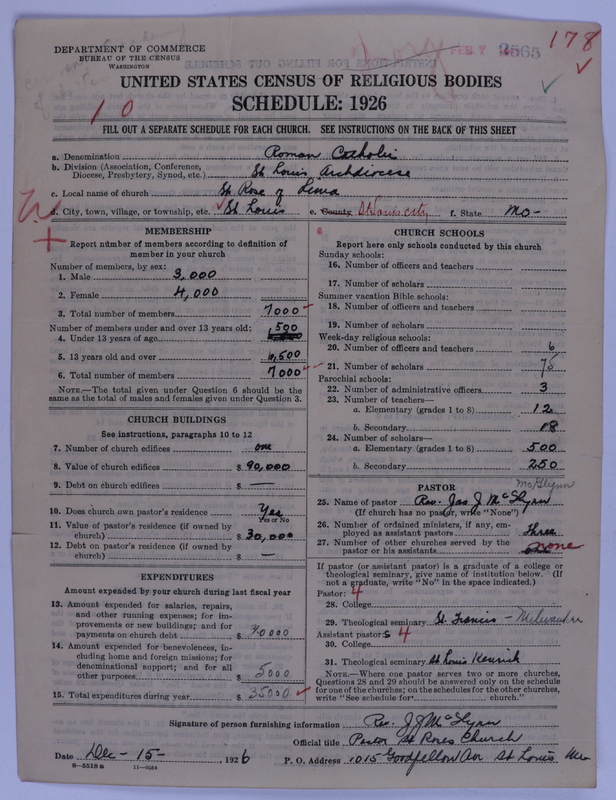 178
FEB 7 3565
DEPARTMENT OF COMMERCE
BUREAU OF THE CENSUS
WASHINGTON
UNITED STATES CENSUS OF RELIGIOUS BODIES
SCHEDULE: 1926
10
FILL OUT A SEPARATE SCHEDULE FOR EACH CHURCH. SEE INSTRUCTIONS ON THE BACK OF THIS SHEET
a. Denomination Roman Catholic
b. Division (Association, Conference, Diocese, Presbytery, Synod, etc.) St. Louis Archdiocese
c. Local name of church St. Rose of Lima
d. City, town, village, or township, etc. St Louis e. County St Louis city f. State Mo-
MEMBERSHIP
Report number of members according to definition of
member in your church
Number of members, by sex:
1. Male 3,000
2. Female 4,000
3. Total number of members 7000
Number of members under and over 13 years old:
4. Under 13 years of age 500
5. 13 years old and over 6,500
6. Total number of members 7000
NOTE.—The total given under Question 6 should be the
same as the total of males and females given under Question 3.
CHURCH BUILDINGS
See instructions, paragraphs 10 to 12
7. Number of church edifices one
8. Value of church edifices $ 90,000
9. Debt on church edifices $ —
10. Does church own pastor's residence Yes
Yes or No
11. Value of pastor's residence (if owned by
church) $ 30,000
12. Debt on pastor's residence (if owned by
church) $ —
EXPENDITURES
Amount expended by your church during last fiscal year
13. Amount expended for salaries, repairs,
and other running expenses; for im-
provements or new buildings; and for
payments on church debt $
14. Amount expended for benevolences, in-
cluding home and foreign missions; for
denominational support; and for all
other purposes $ 5000
15. Total expenditures during year $ 35000
CHURCH SCHOOLS
Report here only schools conducted by this church
Sunday schools:
16. Number of officers and teachers
17. Number of scholars
Summer vacation Bible schools:
18. Number of officers and teachers
19. Number of scholars
Week-day religious schools:
20. Number of officers and teachers 6
21. Number of scholars 75
Parochial schools:
22. Number of administrative officers 3
23. Number of teachers—
a. Elementary (grades 1 to 8) 12
b. Secondary 18
24. Number of scholars—
a. Elementary (grades 1 to 8) 500
b. Secondary 250
PASTOR McGlynn
25. Name of pastor Rev. Jas J McGlynn
(If church has no pastor, write "None")
26. Number of ordained ministers, if any, em-
ployed as assistant pastors three
27. Number of other churches served by the
pastor or his assistants none
If pastor (or assistant pastor) is a graduate of a college or
theological seminary, give name of institution below. (If
not a graduate, write "No" in the space indicated.)
Pastor: 4
28. College
29. Theological seminary St. Francis - Milwaukee
Assistant pastors 4
30. College
31. Theological seminary St Louis Kenrick
NOTE.—Where one pastor serves two or more churches,
Questions 28 and 29 should be answered only on the schedule
for one of the churches; on the schedules for the other churches,
write "See schedule for church."
Signature of person furnishing information Rev. J J McGlynn
Official title Pastor St Roses Church
Date Dec-15- 1926 P. O. Address 1015 Goodfellow Av St Louis Mo
8—5518 a 11—9064